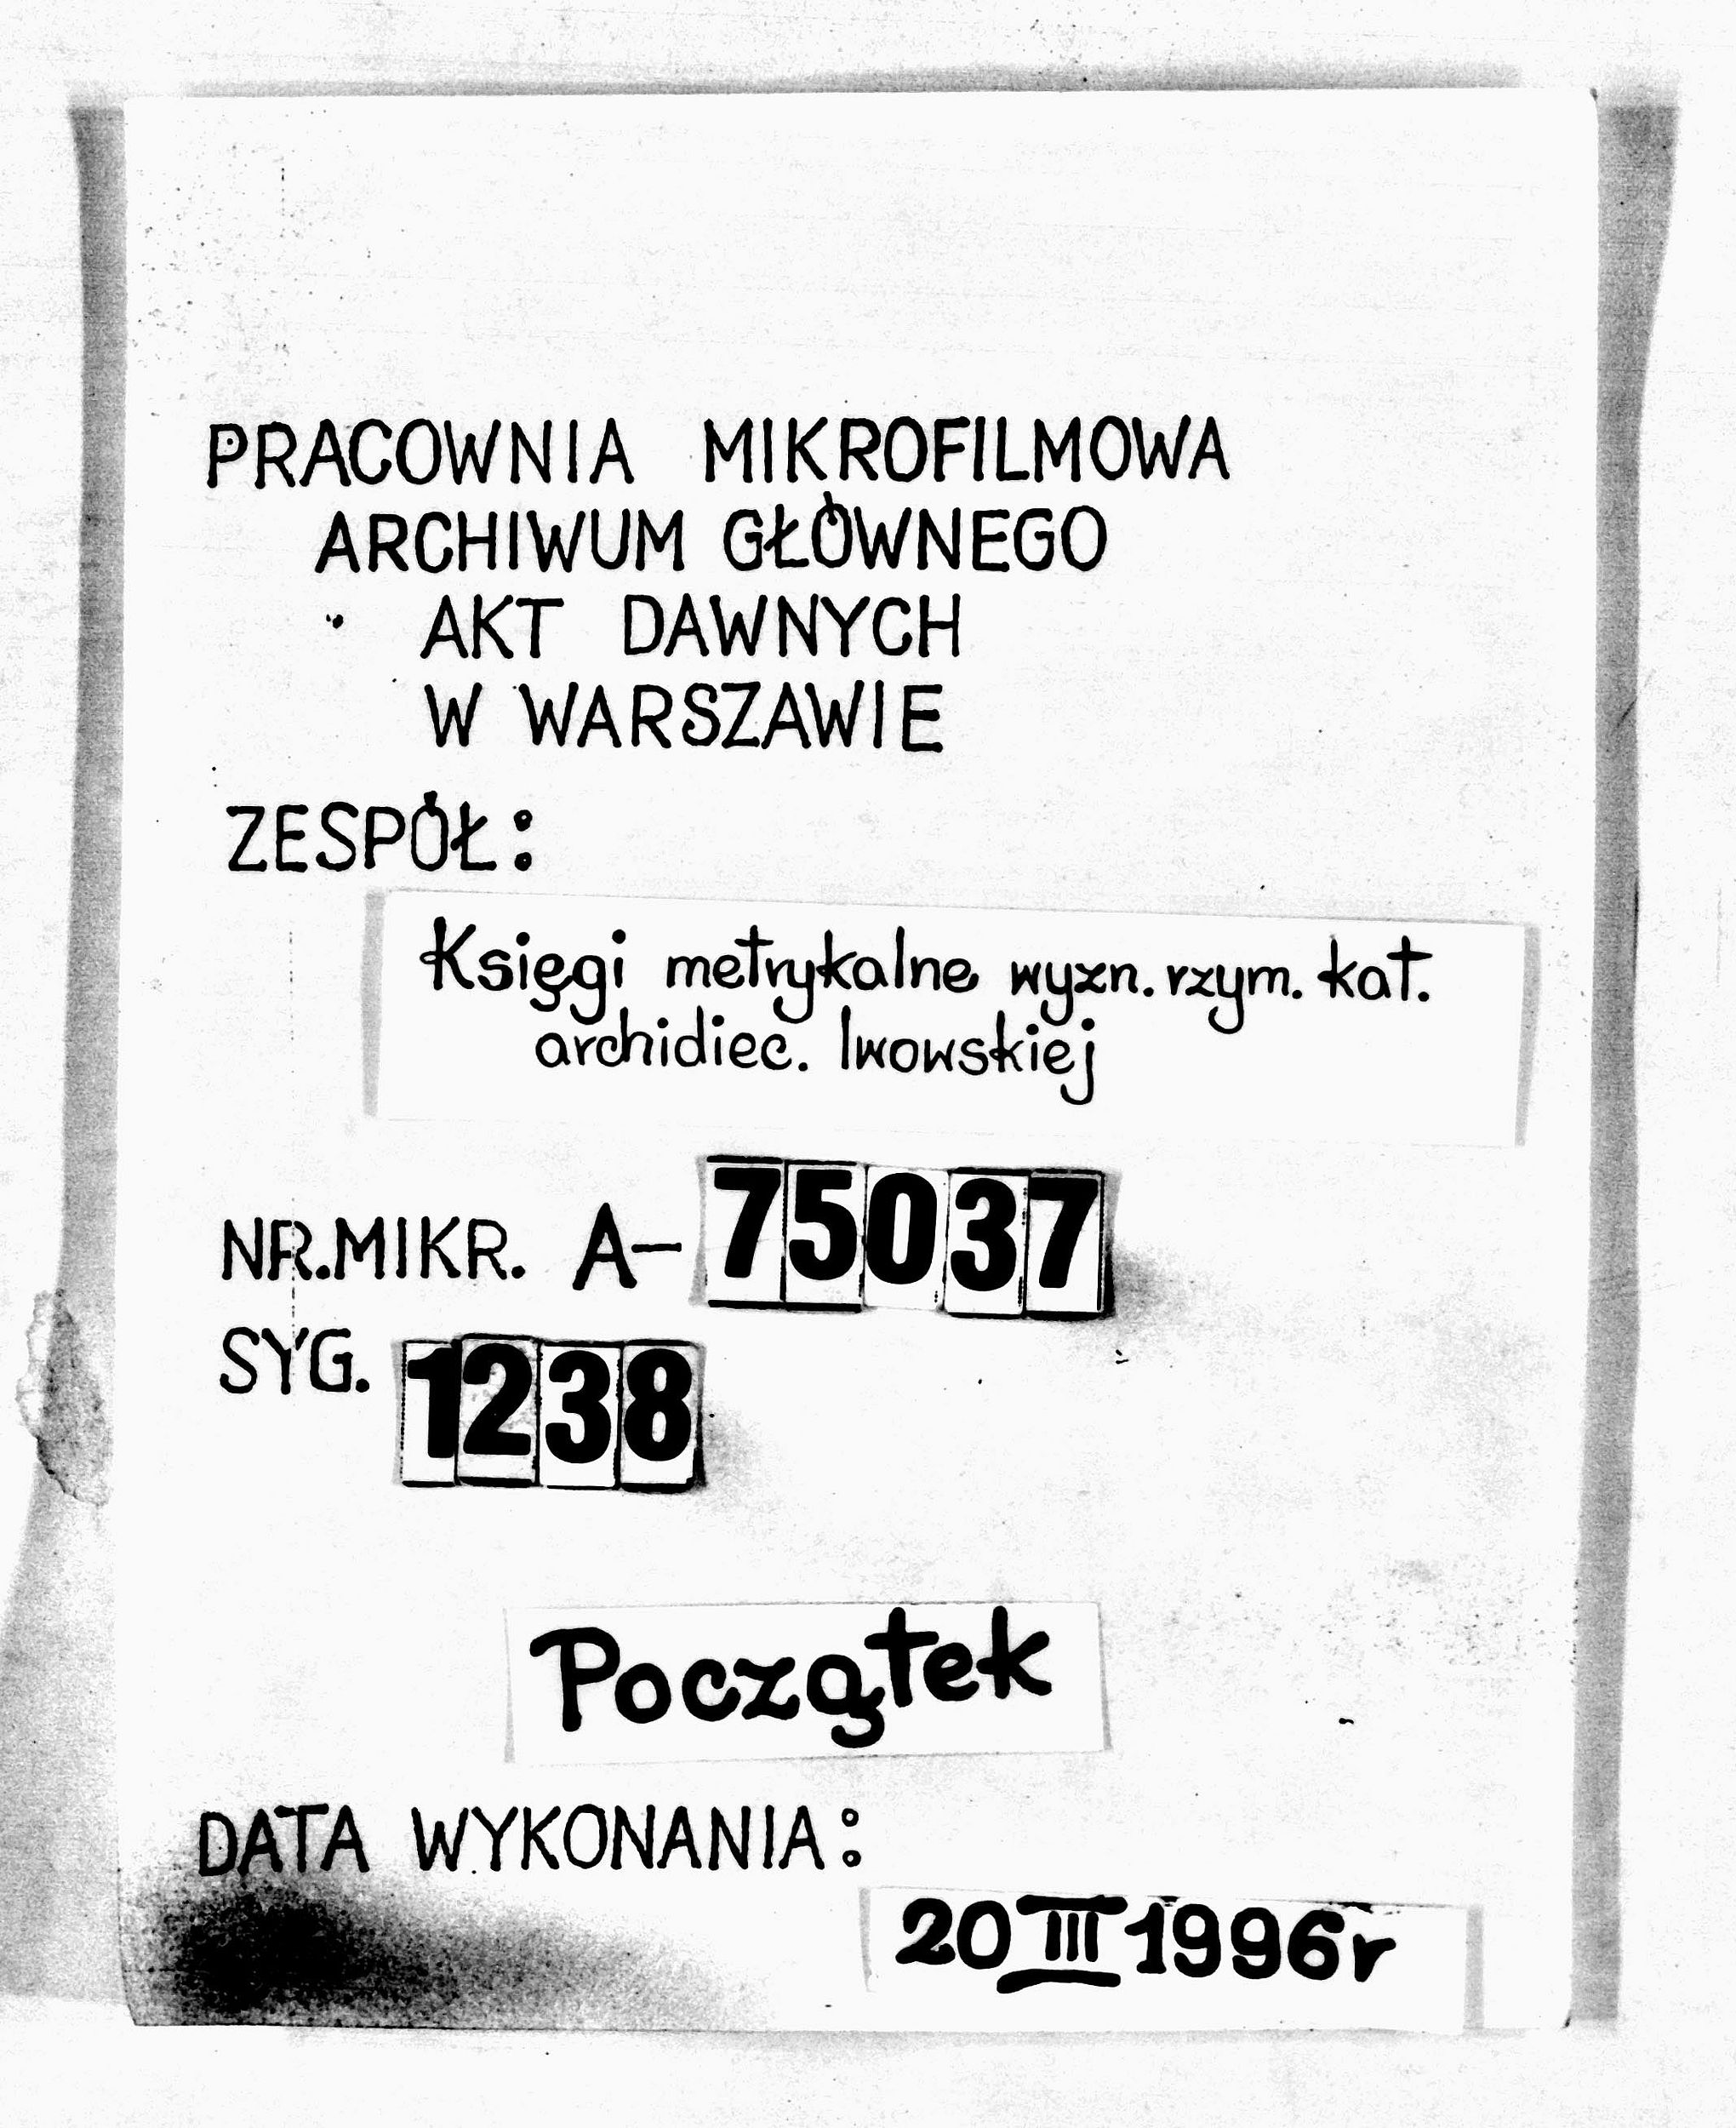 PRACOWNIA MIKROFILMOWA
ARCHIWUM GŁÓWNEGO
AKT DAWNYCH
W WARSZAWIE
ZESPÓŁ:
Księgi metrykalne wyzn. rzym. kat.
archidiec. lwowskiej
NR.MIKR. A-75037
SYG. 1238
Początek
DATA WYKONANIA:
20 III 1996r